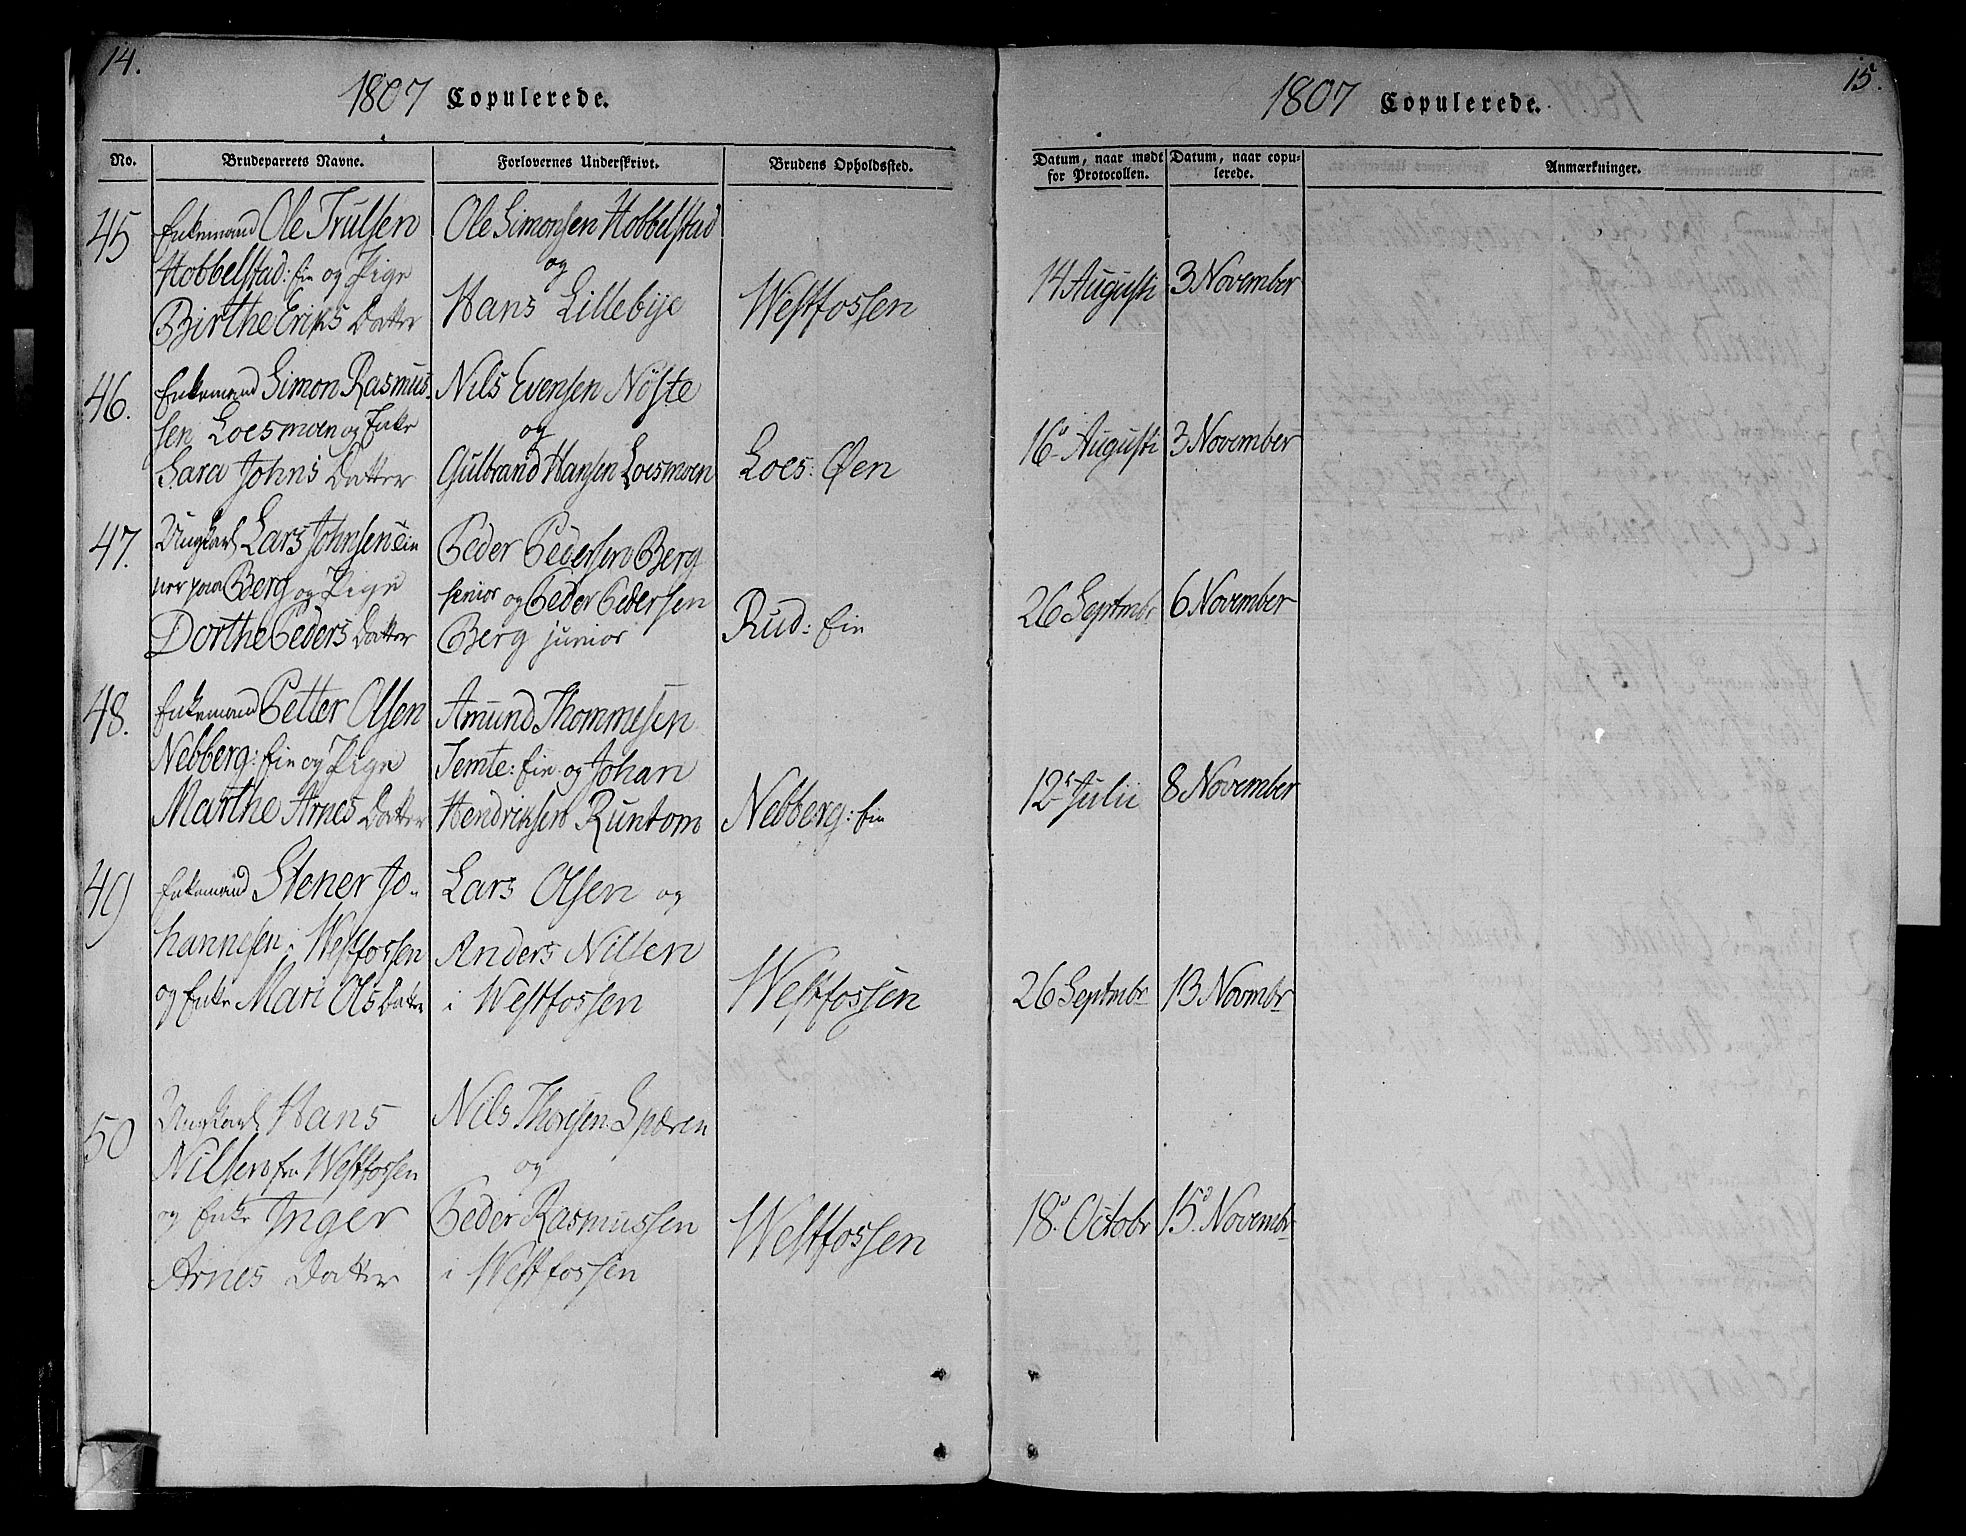 14.
1807 Copulerede.
No.
Brudeparrets Navne.
Forlovernes Underskrivt.
Brudens Opholdssted.
45
Enkemand Ole Trulsen
Hobbelstad: Eie og Pige
Birthe Eriks Datter
Ole Simonsen Hobbelstad
og
Hans Lillebÿe
Westfossen
46.
Enkemand Simon Rasmus-
sen Loesmoen og Enke
Sara Johns Datter
Nils Evensen Nöste
og
Gulbrand Hansen Loesmoen
Loes: Øen
47.
Ungkarl Lars Johnsen Ein
ner paa Berg og Pige
Dorthe Peders Datter
Peder Pedersen Berg
senior og Peder Pedersen
Berg junior
Rud: Eie
48.
Enkemand Petter Olsen
Nebberg: Eie og Pige
Marthe Arnes Datter
Amund Thommesen
Temte: Eie og Johan
Hendriksen Runtom
Nebberg: Eie
49
Enkemand Stener Jo-
hannesen i Westfossen
og Enke Mari Ols Datter
Lars Olsen og
Anders Nilsen
i Westfossen
Westfossen
50
Ungkarl Hans
Nilsen fra Westfossen
og Enke Inger
Arnes Datter
Nils Thorsen Spæren
og
Peder Rasmussen
i Westfossen
Westfossen
15.
1807 Copulerede.
Datum, naar mødt
for Protocollen.
Datum, naar copu-
lerede.
Anmærkninger.
14 Augusti 3 November
16 Augusti 3 November
26 Septmbr 6 November
12 Julii 8 November
26 Septmbr 13 Novmbr
18 Octobr 15 Novembr